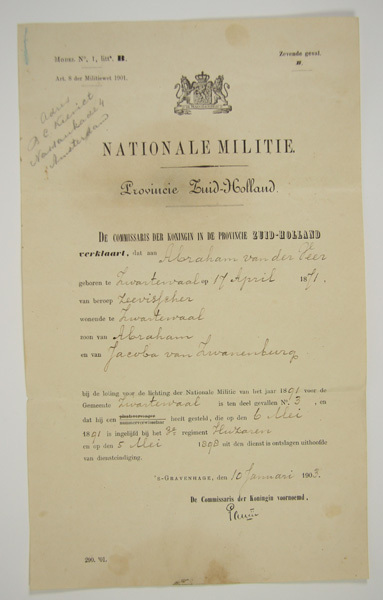 MODEL N°. 1, litt. B.
Zevende geval.
Art. 8 der Militiewet 1901.
Adres
Nassaukade
Amsterdam
NATIONALE MILITIE.
Provincie Zuid-Holland.
DE COMMISSARIS DER KONINGIN IN DE PROVINCIE ZUID-HOLLAND
verklaart, dat aan Abraham van der Veer
geboren te Zwartewaal op 17 April 1871,
van beroep Zeevisscher
wonende te Zwartewaal
zoon van Abraham
en van Jacoba van Zwanenburg
bij de loting voor de lichting der Nationale Militie van het jaar 1891 voor de
Gemeente Zwartewaal is ten deel gevallen N°. 3, en
dat hij een heeft gesteld, die op den 6 Mei
1891 is ingelijfd bij het 3e regiment Huzaren
en op den 5 Mei 1898 uit den dienst is ontslagen uithoofde
van diensteindiging.
'S-GRAVENHAGE, den 10 Januari 1903.
De Commissaris der Koningin voornoemd,
200. '01.